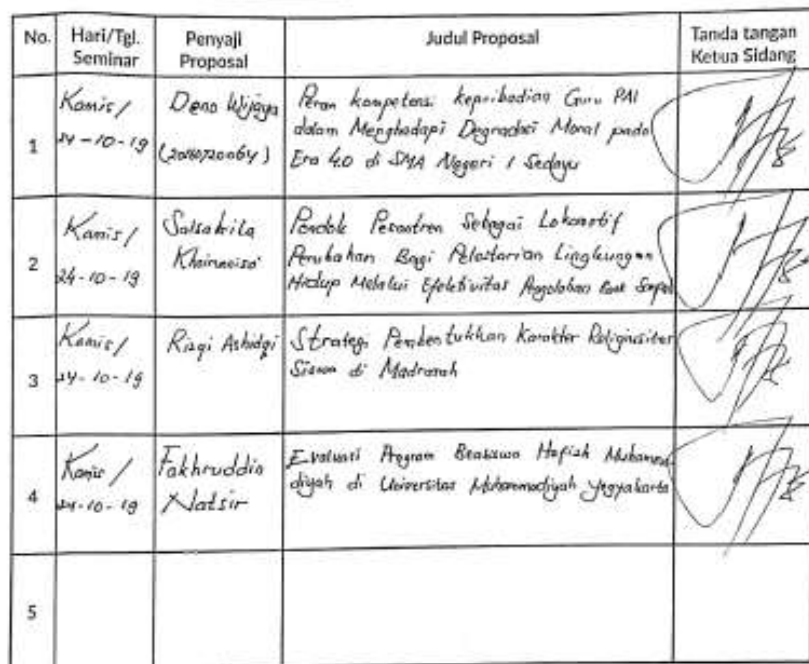 No. Hari/Tgl. Seminar Penyaji Proposal Judul Proposal Tanda tangan Ketua Sidang
1
Kamis/
24-10-19
Deno Wijaya
Peran kompetensi kepribadian Guru PAI
dalam Menghadapi Degradasi Moral pada
Era 4.0 di SMA Negeri 1 Sedayu
2
Kamis/
24-10-19
Salsabila
Khairunnisa
Pondok Pesantren Sebagai Lokomotif
Perubahan Bagi Pelestarian Lingkungan
Hidup Melalui Efektivitas Pengolahan Bank Sampah
3
Kamis/
24-10-19
Rizqi Ashidqi
Strategi Pembentukkan Karakter Religiusitas
Siswa di Madrasah
4
Kamis/
24-10-19
Fakhruddin
Natsir
Evaluasi Program Beasiswa Hafizh Muhamma-
diyah di Universitas Muhammadiyah Yogyakarta
5